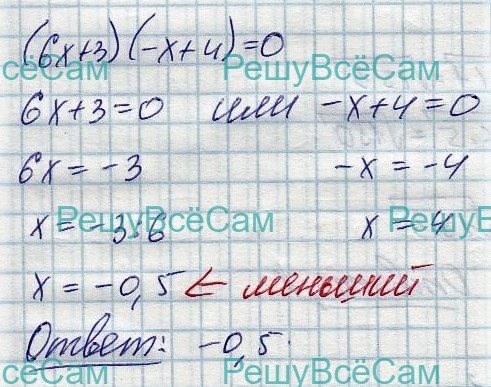 (6x+3)(-x+4)=0
сёСам РешуВсёСам
6x+3=0 или -x+4=0
6x=-3 -x=-4
РешуВсёСам РешуВ
x=-3:6 x=4
x=-0,5 ← меньший
Ответ: -0,5.
сёСам РешуВсёСам